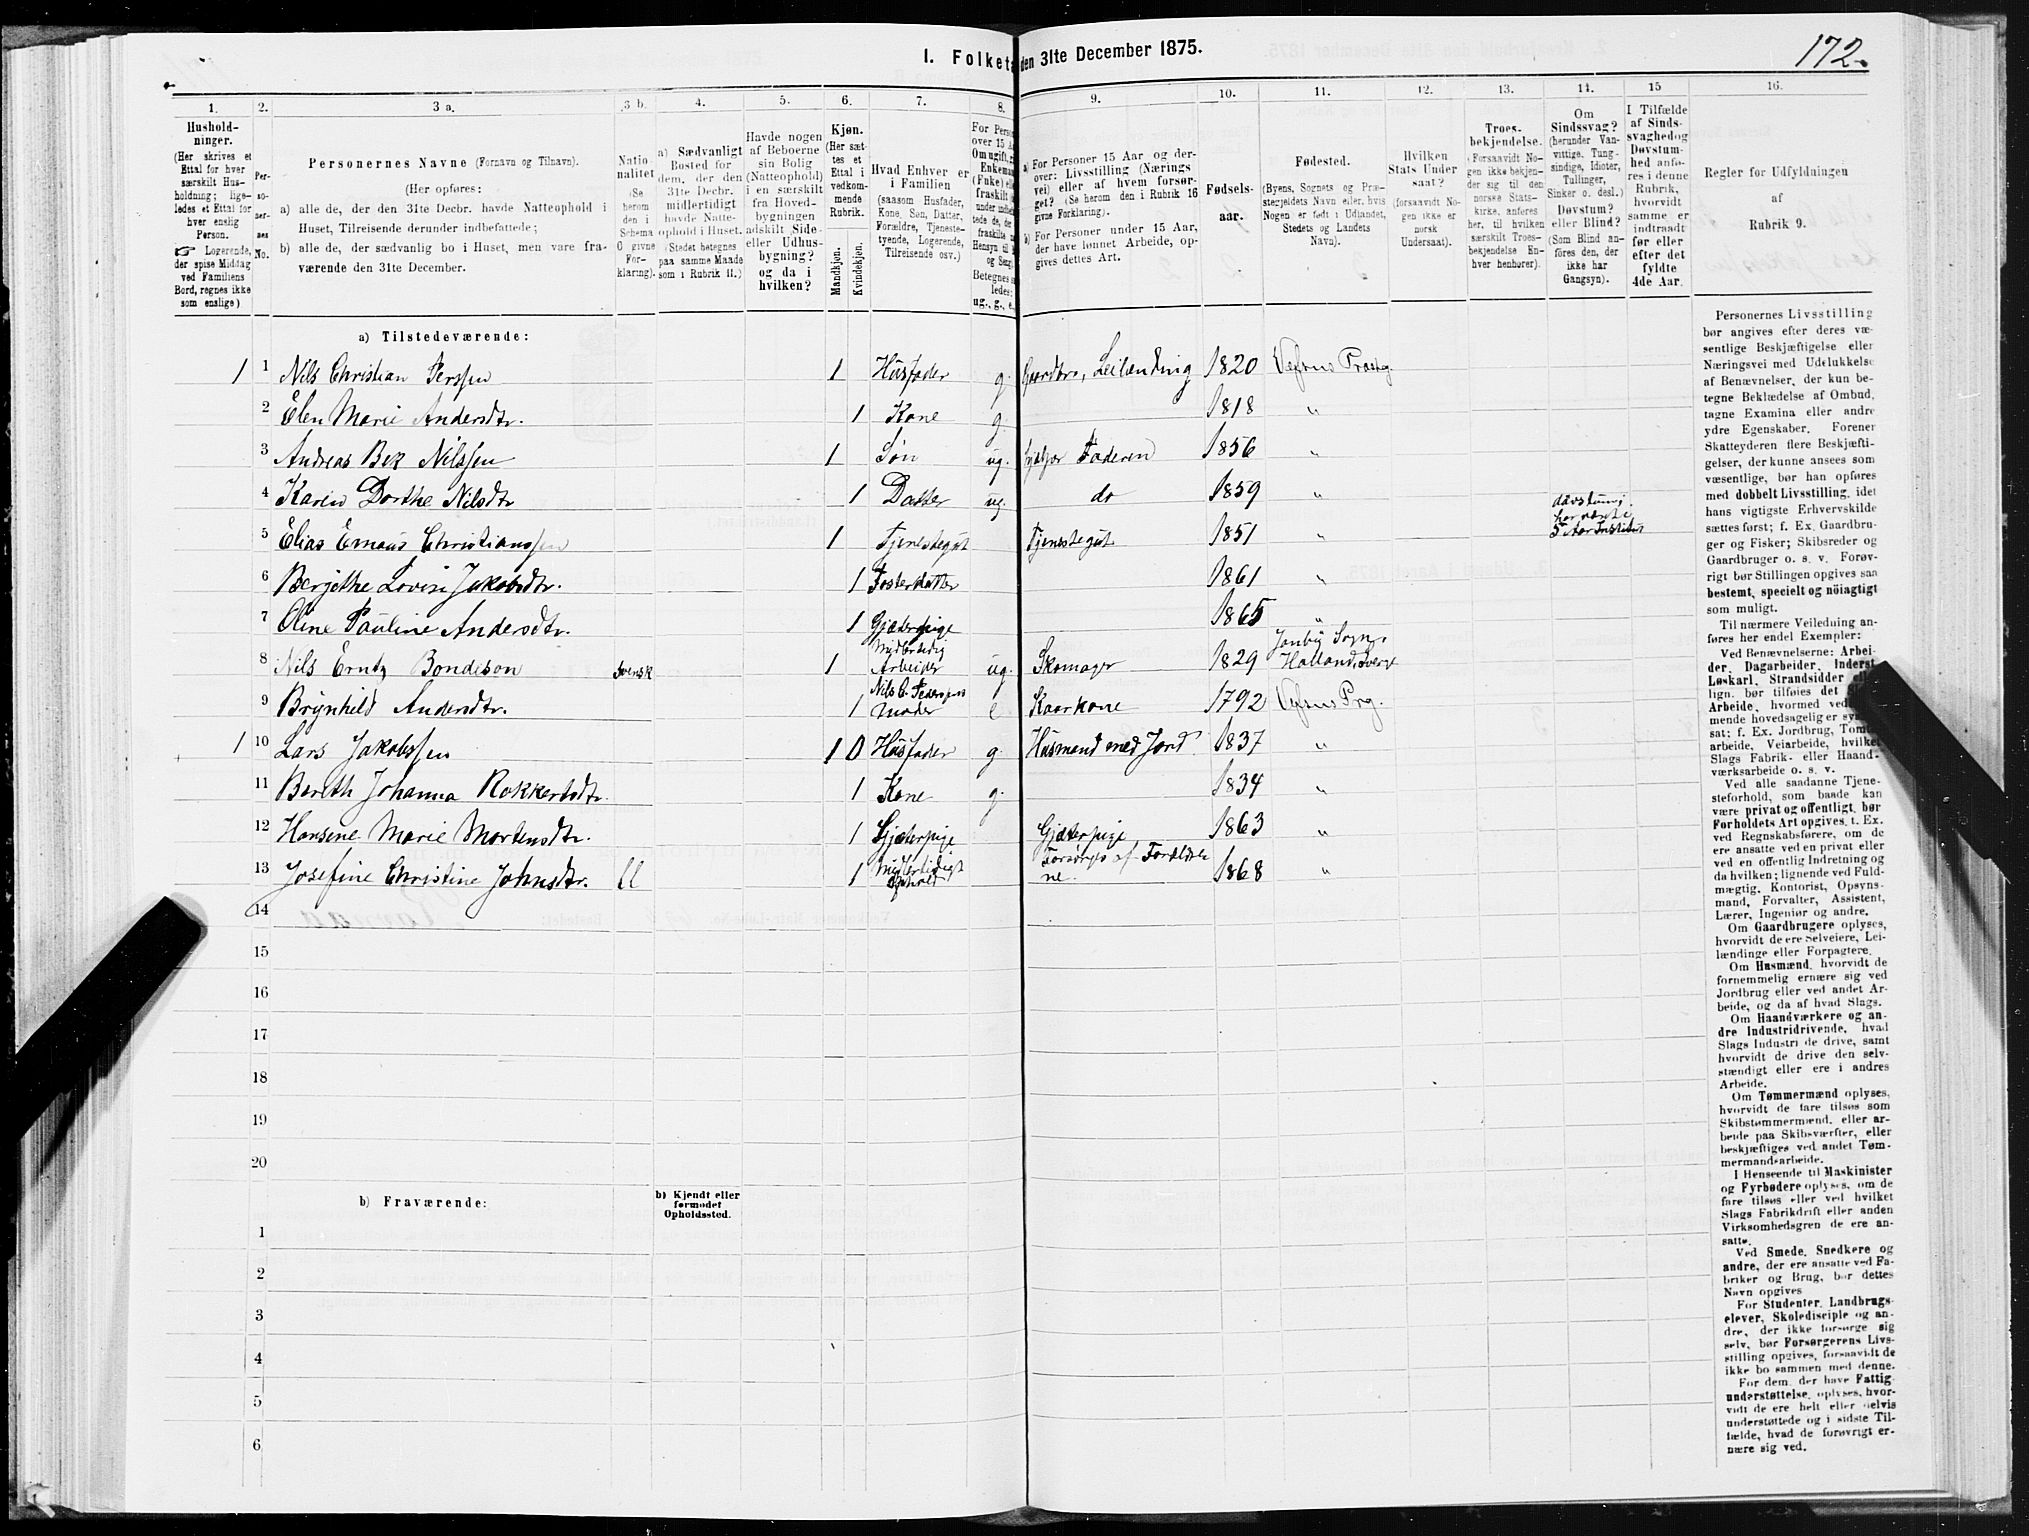 172.
I. Folketa den 31te December 1875.
1. 2. 3 a. 3 b. 4. 5. 6. 7. 8. 9. 10. 11. 12. 13. 14. 15 16.
Hushold-
ninger.
(Her skrives et
Ettal for hver
særskilt Hus-
holdning; lige-
ledes et Ettal for
hver enslig
Person.
☞ Logerende,
der spise Middag
ved Familiens
Bord, regnes ikke
som enslige)
Per-
so-
ner-
nes
No.
Personernes Navne (Fornavn og Tilnavn).
(Her opføres:
a) alle de, der den 31te Decbr. havde Natteophold i
Huset, Tilreisende derunder indbefattede;
b) alle de, der sædvanlig bo i Huset, men vare fra-
værende den 31te December.
Natio-
nalitet
(Se
herom
den i
Schema
O givne
For-
klaring).
a) Sædvanligt
Bosted for
dem, der den
31te Decbr.
midlertidigt
havde Natte-
ophold i Huset.
(Stedet betegnes
paa samme Maade
som i Rubrik 11.)
Havde nogen
af Beboerne
sin Bolig
(Natteophold)
i en særskilt
fra Hoved-
bygningen
adskilt Side-
eller Udhus-
bygning?
og da i
hvilken?
Kjøn.
(Her sæt-
tes et
Ettal i
vedkom-
mende
Rubrik.
Mandkjøn.
Kvindekjøn.
Hvad Enhver er
i Familien
(saasom Husfader,
Kone, Søn, Datter,
Forældre, Tjeneste-
tyende, Logerende,
Tilreisende osv.)
For Perso
over 15 A
Om ugift, g
Enkeman
(Fuke) el
fraskilt
Betegnes s
ledes:
ug., g., e.,
a) For Personer 15 Aar og der-
over: Livsstilling (Nærings
vei) eller af hvem forsør-
get? (Se herom den i Rubrik 16
givne Forklaring).
b) For Personer under 15 Aar,
der have lønnet Arbeide, op-
gives dettes Art.
Fødsels-
aar.
Fødested.
(Byens, Sognets og Præ-
stegjeldets Navn eller, hvis
Nogen er født i Udlandet,
Stedets og Landets
Navn).
Hvilken
Stats Under
saat?
(forsaavidt No-
gen ikke er
norsk
Undersaat).
Troes-
bekjendelse.
(Forsaavidt No-
gen ikke bekjen-
der sig til den
norske Stats-
kirke, anføres
her, til hvilken
særskilt Troes-
bekjendelse En-
hver henhører).
Om
Sindssvag?
(herunder Van-
vittige, Tung-
sindige, Idioter,
Tullinger,
Sinker o. desl.)
Døvstum?
eller Blind?
(Som Blind an-
føres den, der
ikke har
Gangsyn).
I Tilfælde
af Sinds-
svaghedog
Døvstum-
hed anfø-
res i denne
Rubrik,
hvorvidt
samme er
indtraadt
før eller
efter det
fyldte
4de Aar.
Regler for Udfyldningen
af
Rubrik 9.
a) Tilstedeværende:
1 1 Nils Christian Perssen 1 Husfader g. Gaardbr, Leilending 1820 Vefsns Præstg.
2 Elen Marie Andersdtr. 1 Kone g. 1818 "
3 Andreas Bek Nilssen 1 Søn ug. Hjælper Faderen 1856 "
4 Karen Dorthe Nilsdtr 1 Datter ug. do 1859 "
døvstum;
har været i
5 Aar Institut
5 Elias Emaus Christianssen 1 Tjenestegut Tjenestegut 1851 "
6 Berjethe Lovise Jakobsdtr. 1 Fosterdatter 1861 "
7 Oline Pauline Andersdtr. 1 Gjæterpige 1865 "
8 Nils Erntz Bondeson Svensk 1 Midlertidig Arbeider ug. Skomager 1829 Sogn, Halland, Sverge
9 Brynhild Andersdtr. 1 Nils C. Pederssens Moder e Kaarkone 1792 Vefsns Prg.
1 10 Lars Jakobssen 1 0 Husfader g. Husmand med Jord 1837 "
11 Bereth Johanna Rokkertsdtr. 1 Kone g. 1834 "
12 Hansine Marie Mortensdtr. 1 Gjæterpige Gjæterpige 1863 "
13 Josefine Christine Johnsdtr. ll 1 Midlertidigt Ophold Forsørges af Forældre ne. 1868 "
14
15
16
17
18
19
20
b) Fraværende:
b) Kjendt eller
formodet
Opholdssted.
1
2
3
4
5
6
Personernes Livsstilling
bør angives efter deres væ-
sentlige Beskjæftigelse eller
Næringsvei med Udelukkelse
af Benævnelser, der kun be-
tegne Beklædelse af Ombud,
tagne Examina eller andre
ydre Egenskaber. Forener
Skatteyderen flere Beskjæfti-
gelser, der kunne ansees som
væsentlige, bør han opføres
med dobbelt Livsstilling, idet
hans vigtigste Erhvervskilde
sættes først; f. Ex. Gaardbru-
ger og Fisker; Skibsreder og
Gaardbruger o. s. v. Forøv-
rigt bør Stillingen opgives saa
bestemt, specielt og nöiagtigt
som muligt.
Til nærmere Veiledning an-
føres her endel Exempler:
Ved Benævnelserne: Arbei-
der, Dagarbeider, Inderst,
Løskarl, Strandsidder el
lign. bør tilføies det
Arbeide, hvormed ved
mende hovedsagelig er sy
sat; f. Ex. Jordbrug, Tøm
arbeide, Veiarbeide, hvilke
Slags Fabrik- eller Haand-
værksarbeide o. s. v.
Ved alle saadane Tjene-
steforhold, som baade kan
være privat og offentligt, bør
Forholdets Art opgives. t. Ex.
ved Regnskabsførere, om de
ere ansatte ved en privat eller
ved en offentlig Indretning og
da hvilken; lignende ved Fuld-
mægtig, Kontorist, Opsyns-
mand, Forvalter, Assistent,
Lærer, Ingeniør og andre.
Om Gaardbrugere oplyses,
hvorvidt de ere Selveiere, Lei-
lændinge eller Forpagtere.
Om Husmænd, hvorvidt de
fornemmelig ernære sig ved
Jordbrug eller ved andet Ar-
beide, og da af hvad Slags.
Om Haandværkere og an-
dre Industridrivende, hvad
Slags Industri de drive, samt
hvorvidt de drive den selv-
stændigt eller ere i andres
Arbeide.
Om Tømmermænd oplyses,
hvorvidt de fare tilsøs som
Skibstømmermænd, eller ar-
beide paa Skibsværfter, eller
beskjæftiges ved andet Tøm-
mermandsarbeide.
I Henseende til Maskinister
og Fyrbødere oplyses, om de
fare tilsøs eller ved hvilket
Slags Fabrikdrift eller anden
Virksomhedsgren de ere an-
satte.
Ved Smede, Snedkere og
andre, der ere ansatte ved Fa-
briker og Brug, bør dettes
Navn opgives
For Studenter, Landbrugs-
elever, Skoledisciple og an-
dre, der ikke forsørge sig
selv, bør Forsørgerens Livs-
stilling opgives, forsaavidt de
ikke bo sammen med denne.
For dem, der have Fattig-
understøttelse, oplyses, hvor-
vidt de ere helt eller delvis
understøttede og i sidste Til-
fælde, hvad de forøvrigt er-
nære sig ved.